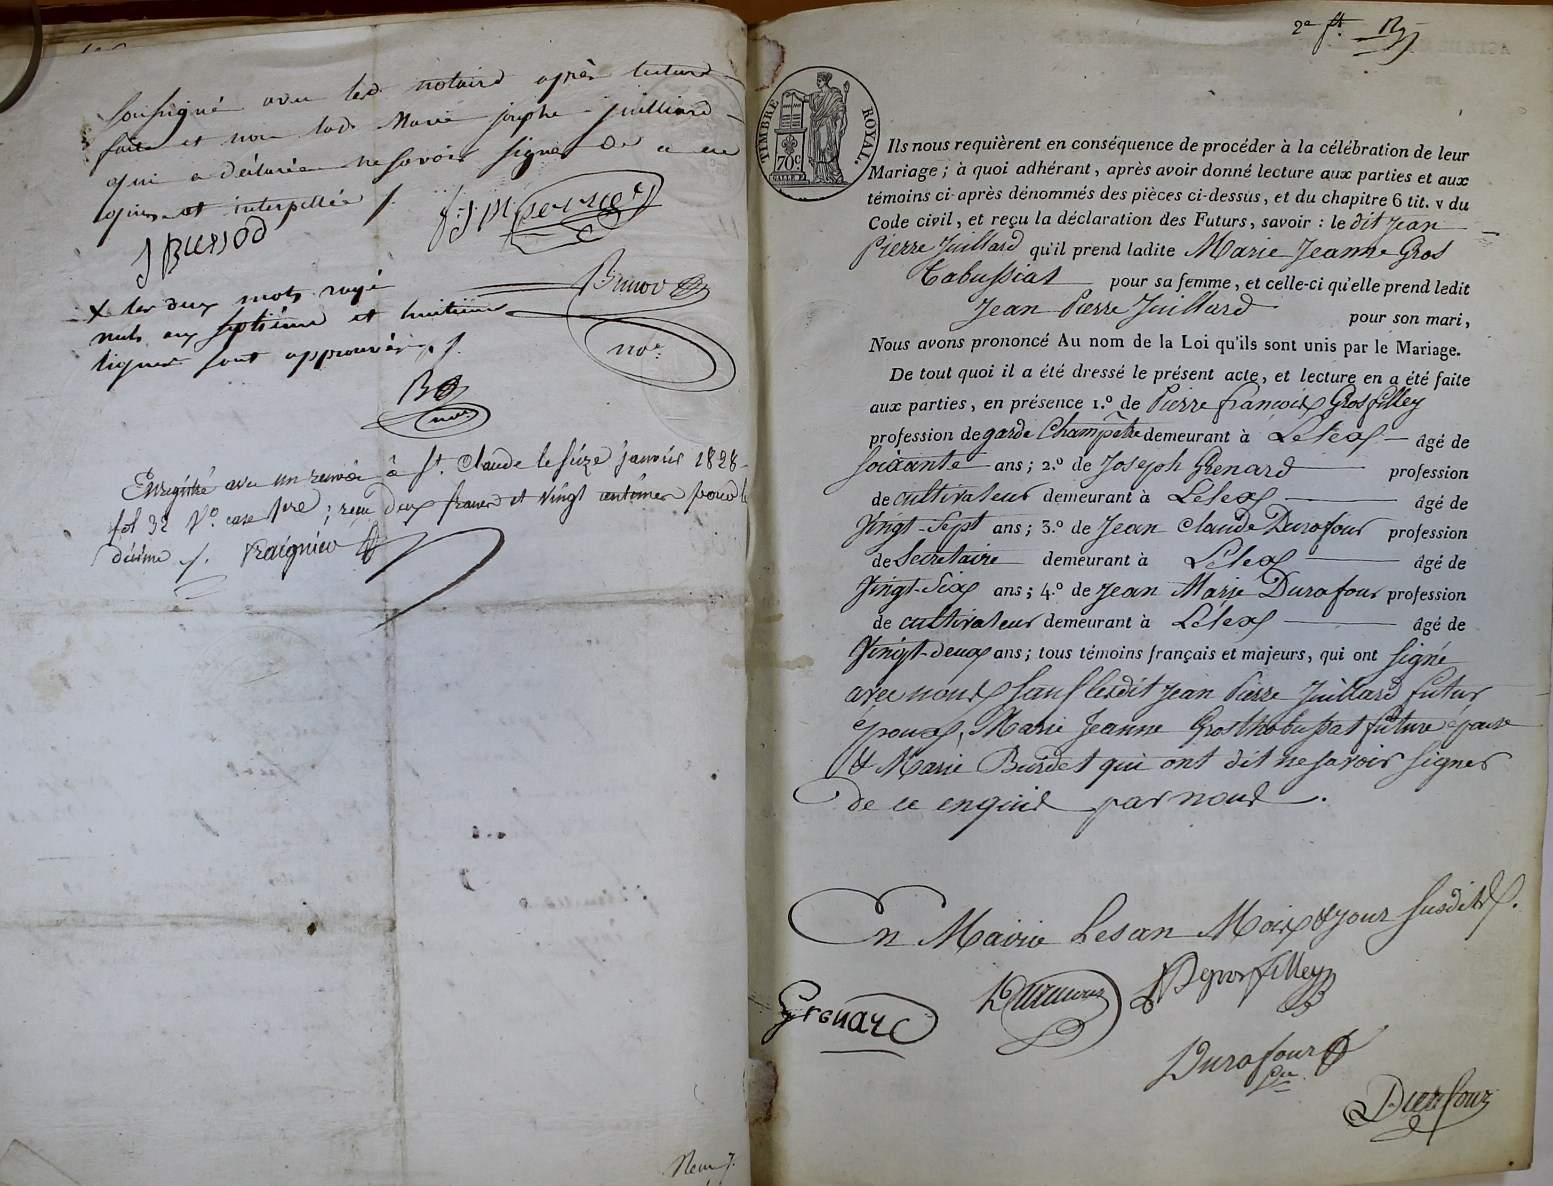 Soussigné avec led. notaire après lecture
faite et non lad. Marie josephe juilliard
qui a déclarée ne savoir signer de ce
requise et interpellée /.
J Bussod
x les deux mots rayé
nuls aux septième et huitieme
lignes sont approuvés ./.
Brunov
no.re
Enregistré avec un renvoi à St. Claude le seize janvier 1828
fol 32 V.o case 1ere ; reçu deux francs et vingt centimes pour le
décime ./. Fraignier
2e ft.
TIMBRE ROYAL.
70c
Ils nous requièrent en conséquence de procéder à la célébration de leur
Mariage ; à quoi adhérant, après avoir donné lecture aux parties et aux
témoins ci-après dénommés des pièces ci-dessus, et du chapitre 6 tit. v du
Code civil, et reçu la déclaration des Futurs, savoir : le dit jean
Pierre Juillard qu'il prend ladite Marie Jeanne Gros
tabussiat pour sa femme, et celle-ci qu'elle prend ledit
Jean Pierre Juillard pour son mari,
Nous avons prononcé Au nom de la Loi qu'ils sont unis par le Mariage.
De tout quoi il a été dressé le présent acte, et lecture en a été faite
aux parties, en présence 1.º de Pierre françois Grosfilley
profession de garde Champêtre demeurant à Lélex âgé de
soixante ans ; 2.º de Joseph Grenard profession
de cultivateur demeurant à Lélex âgé de
Vingt-Sept ans ; 3.º de Jean Claude Durafour profession
de Secretaire demeurant à Lélex âgé de
Vingt-Six ans ; 4.º de Jean Marie Durafour profession
de cultivateur demeurant à Lélex âgé de
Vingt-deux ans ; tous témoins français et majeurs, qui ont signé
avec nous sauf lesdit Jean Pierre Juillard futur
époux, Marie Jeanne Grosthabussat future épouse
& Marie Burdet qui ont dit ne savoir signer
de ce enquis par nous.
En Mairie Les an Mois & jour susdits.
Grenard
grosfilley
Durafour
Durafour